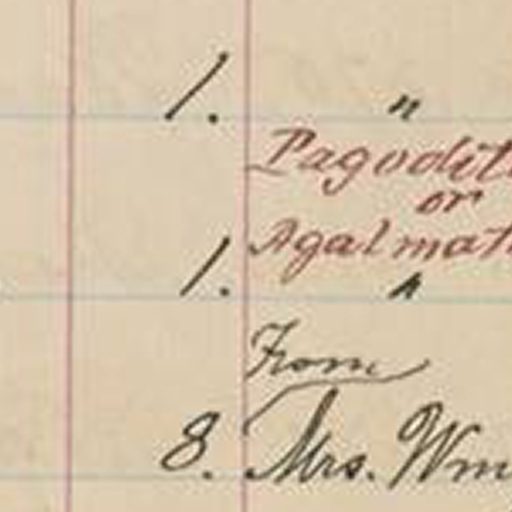 1. "
Pagodit
or
Agalmat
1. "
From
8. Mrs. Wm